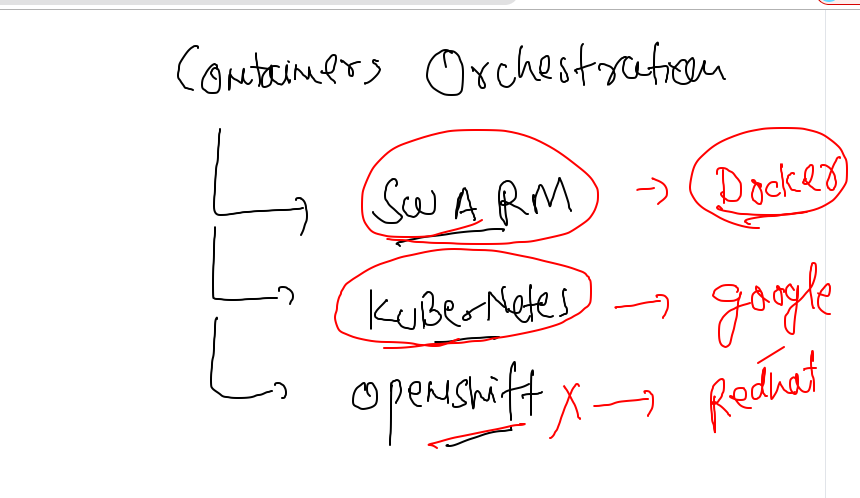 Containers Orchestration
SWARM → Docker
KuBerNetes → google
openshift X → Redhat